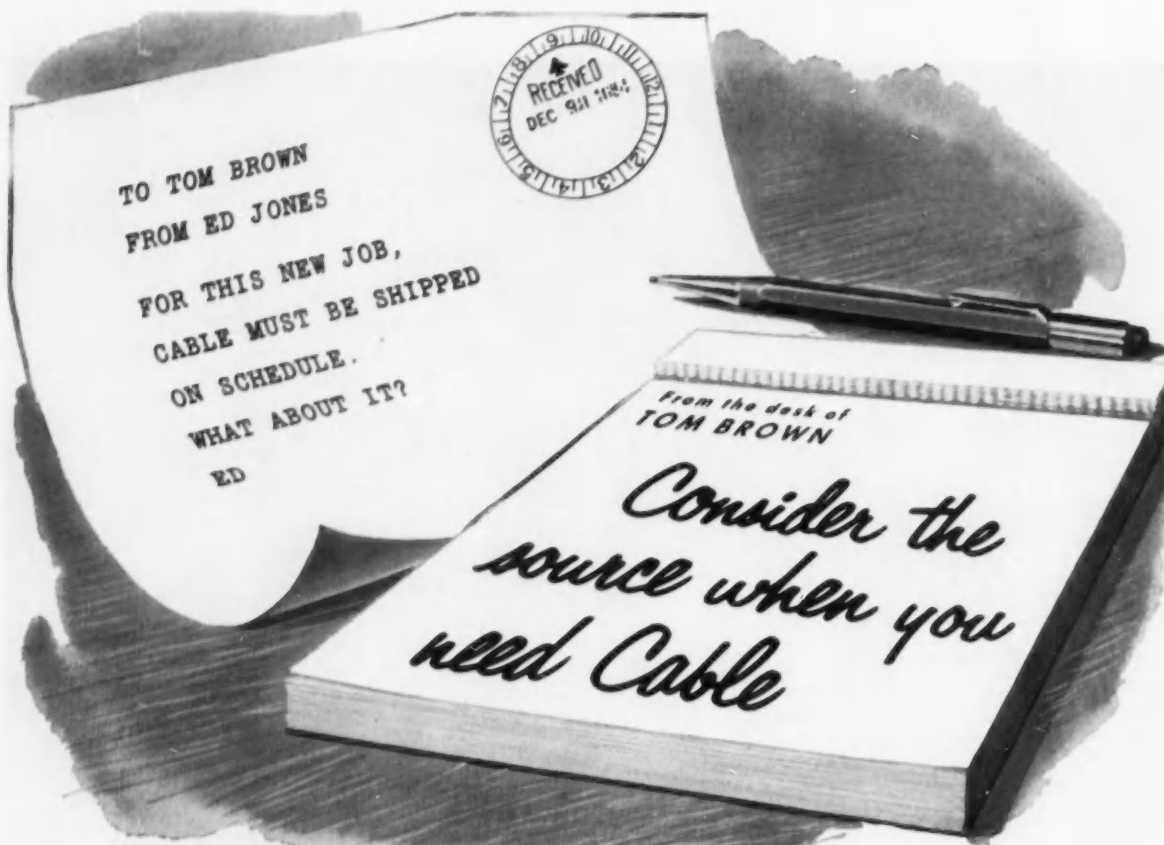 TO TOM BROWN
FROM ED JONES
FOR THIS NEW JOB,
CABLE MUST BE SHIPPED
ON SCHEDULE.
WHAT ABOUT IT?
ED
8 9 10 11 12 1 2 3 4 5 6 7
RECEIVED
DEC
From the desk of
TOM BROWN
Consider the
source when you
need Cable